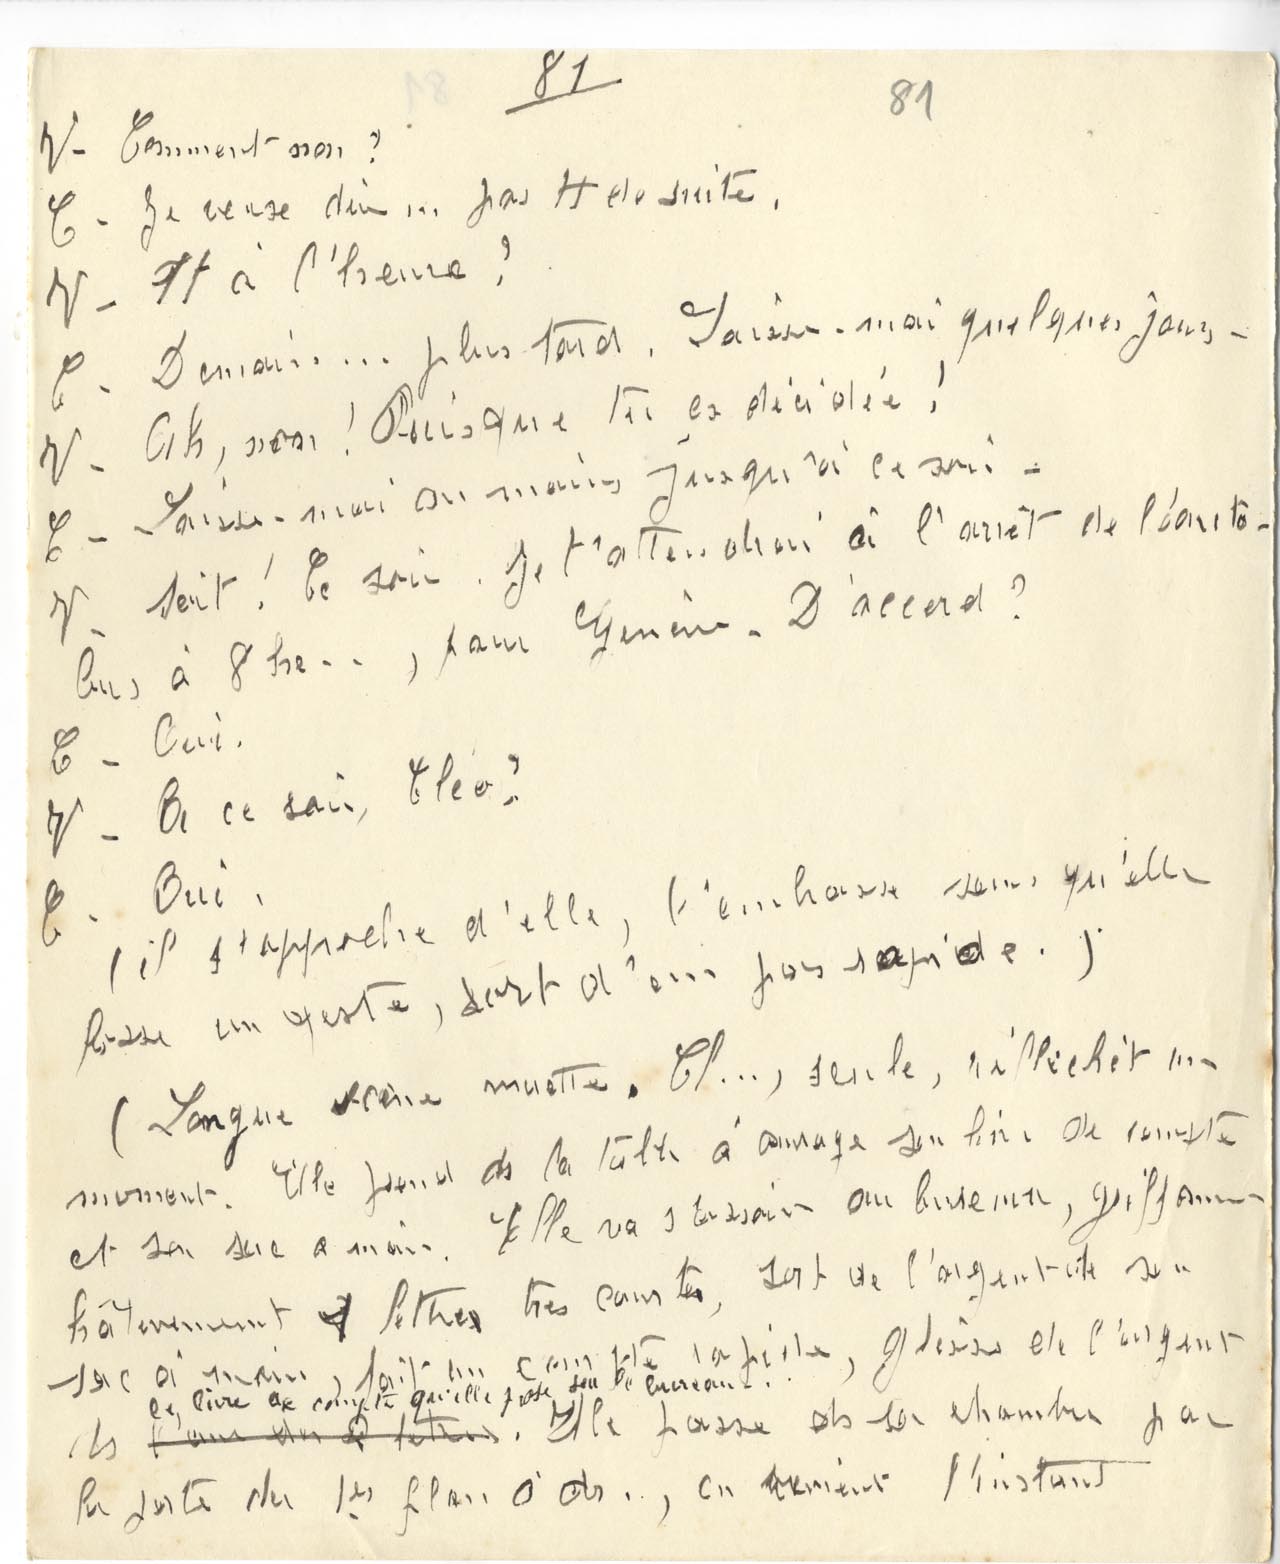 81 81
V- Comment non ?
C - Je veux dire ... pas tt de suite.
V - Tt à l'heure ?
C - Demain ... plus tard. Laisse-moi quelques jours -
V - Ah, non ! Puisque tu es décidée !
C - Laisse-moi au moins jusqu'à ce soir -
V - Soit ! Ce soir. Je t'attendrai à l'arrêt de l'auto-
bus à 8 he.., pour Genève - D'accord ?
C - Oui.
V - A ce soir, Cléo ?
C - Oui.
(il s'approche d'elle, l'embrasse sans qu'elle
fasse un geste, sort d'un pas rapide.)
(Longue scène muette. Cl..., seule, réfléchit un
moment. Elle prend ds la table à ouvrage son livre de compte
et son sac a main. Elle va s'asseoir au bureau, griffonne
hâtivement lettres très courtes, sort de l'argent de son
sac à main, fait un compte rapide, glisse de l'argent
le livre de compte qu'elle pose sur le bureau.
ds l'une des 2 lettres. Elle passe ds sa chambre par
la porte du 1er plan à dr.., en revient l'instant